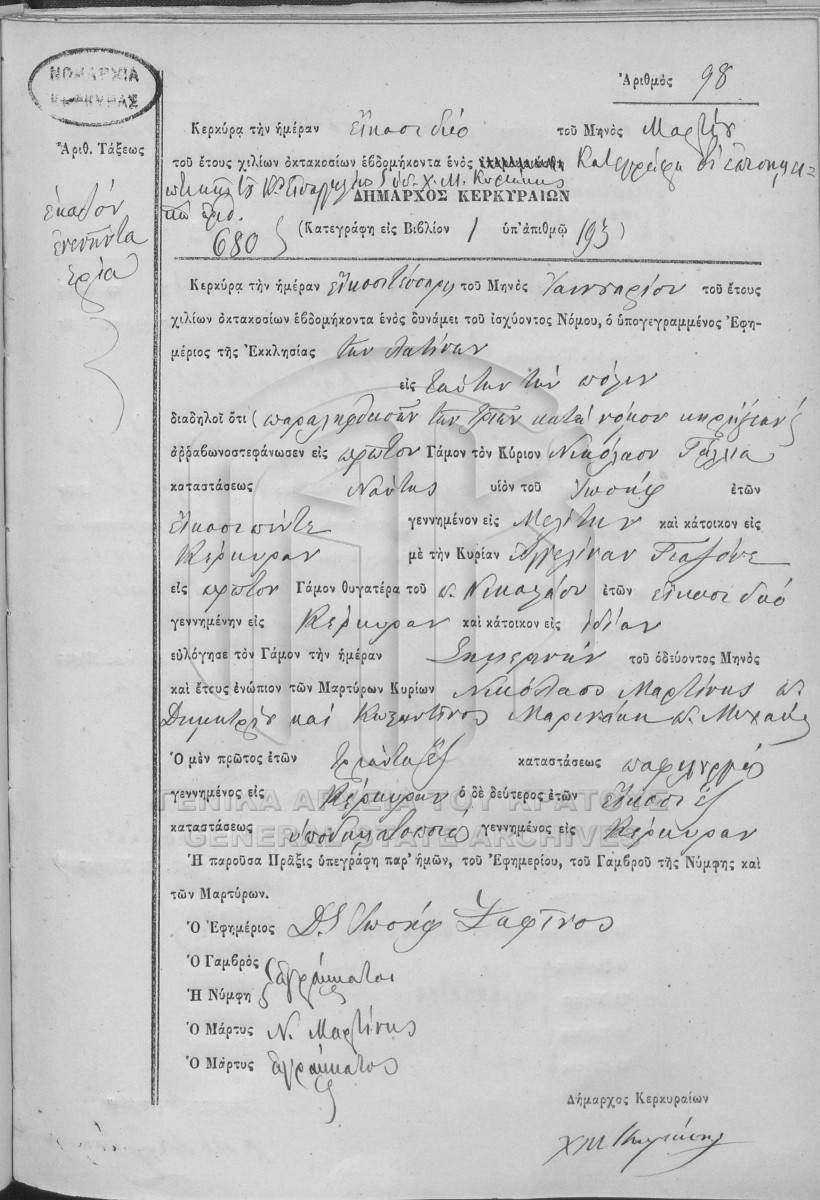 ΝΟΜΑΡΧΙΑ
ΚΕΡΚΥΡΑΣ
Ἀριθ. Τάξεως
ἑκατόν
ἐνενῆντα
τρία
Ἀριθμὸς 98
Κερκύρα τὴν ἡμέραν εἴκοσι δύο τοῦ Μηνὸς Μαρτίου
τοῦ ἔτους χιλίων ὀκτακοσίων ἑβδομήκοντα ἑνὸς Κατεγράφη
ΔΗΜΑΡΧΟΣ ΚΕΡΚΥΡΑΙΩΝ
680
(Κατεγράφη εἰς Βιβλίον 1 ὑπ' ἀριθμῷ 193)
Κερκύρα τὴν ἡμέραν εἴκοσι τέσσαρες τοῦ Μηνὸς Ἰαννουαρίου τοῦ ἔτους
χιλίων ὀκτακοσίων ἑβδομήκοντα ἑνὸς δυνάμει τοῦ ἰσχύοντος Νόμου, ὁ ὑπογεγραμμένος Ἐφη-
μέριος τῆς Ἐκκλησίας των Λατίνων
εἰς ταύτην τὴν πόλιν
διαδηλοῖ ὅτι (παραλειφθεισῶν των τριῶν κατὰ νόμον κηρύξεων)
ἀῤῥαβωνοστεφάνωσεν εἰς πρῶτον Γάμον τὸν Κύριον Νικόλαον Γάλλια
καταστάσεως Ναύτης υἱὸν τοῦ Ἰωσὴφ ἐτῶν
εἴκοσι πέντε γεννημένον εἰς Μελίτην καὶ κάτοικον εἰς
Κέρκυραν μὲ τὴν Κυρίαν Ἀγγελίναν
εἰς πρῶτον Γάμον θυγατέρα τοῦ π. Νικολάου ἐτῶν εἴκοσι δύο
γεννημένην εἰς Κέρκυραν καὶ κάτοικον εἰς ἰδίαν
εὐλόγησε τὸν Γάμον τὴν ἡμέραν Σημερινήν τοῦ ὁδεύοντος Μηνὸς
καὶ ἔτους ἐνώπιον τῶν Μαρτύρων Κυρίων Νικόλαος Μαρτίνης π.
Δημητρίου καὶ Κωσταντῖνος Μαρινάκη π. Μιχαήλ
Ὁ μὲν πρῶτος ἐτῶν τριάντα ἓξ καταστάσεως
γεννημένος εἰς Κέρκυραν ὁ δὲ δεύτερος ἐτῶν εἴκοσι ἓξ
καταστάσεως ὑποδηματοποιός γεννημένος εἰς Κέρκυραν
ΓΕΝΙΚΑ ΑΡΧΕΙΑ ΤΟΥ ΚΡΑΤΟΥΣ
GENERAL STATE ARCHIVES
Ἡ παροῦσα Πρᾶξις ὑπεγράφη παρ' ἡμῶν, τοῦ Ἐφημερίου, τοῦ Γαμβροῦ τῆς Νύμφης καὶ
τῶν Μαρτύρων.
Ὁ Ἐφημέριος D. Ἰωσήφ Ζαφῖνος
Ὁ Γαμβρὸς
ἀγράμματοι
Ἡ Νύμφη
Ὁ Μάρτυς Ν. Μαρτίνης
Ὁ Μάρτυς ἀγράμματος
Δήμαρχος Κερκυραίων